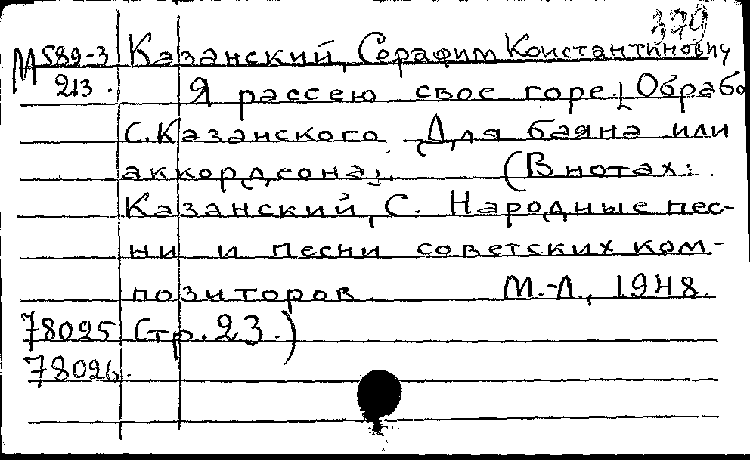 379
М 589-3 Казанский, Серафим Константинович
213. Я рассею свое горе. [Обрабо
С. Казанского. Для баяна или
аккордеона]. (В нотах:
Казанский, С. Народные пес-
ни и песни советских ком-
позиторов. М.-Л., 1948.
78025 Стр. 23.)
78026.